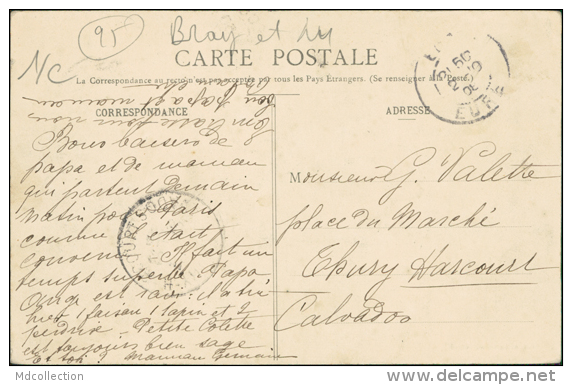 95
Bray et Lu
NC
CARTE POSTALE
La Correspondance au recto n'est pas acceptée par tous les Pays Étrangers. (Se renseigner à la Poste)
CORRESPONDANCE
ADRESSE
ton papa et maman
Bons baisers de
papa et de maman
qui partent demain
matin pour Paris
comme c'était
convenu. Il fait un
temps superbe. Papa
est ravi: il a tué
hier 1 faisan 1 lapin et 2
perdrix. Petite Colette
est toujours bien sage
Et toi? maman Germaine
Monsieur G. Valette
place du Marché
Thury Harcourt
Calvados
EURE
HARCOURT
Mdcollection
delcampe.net